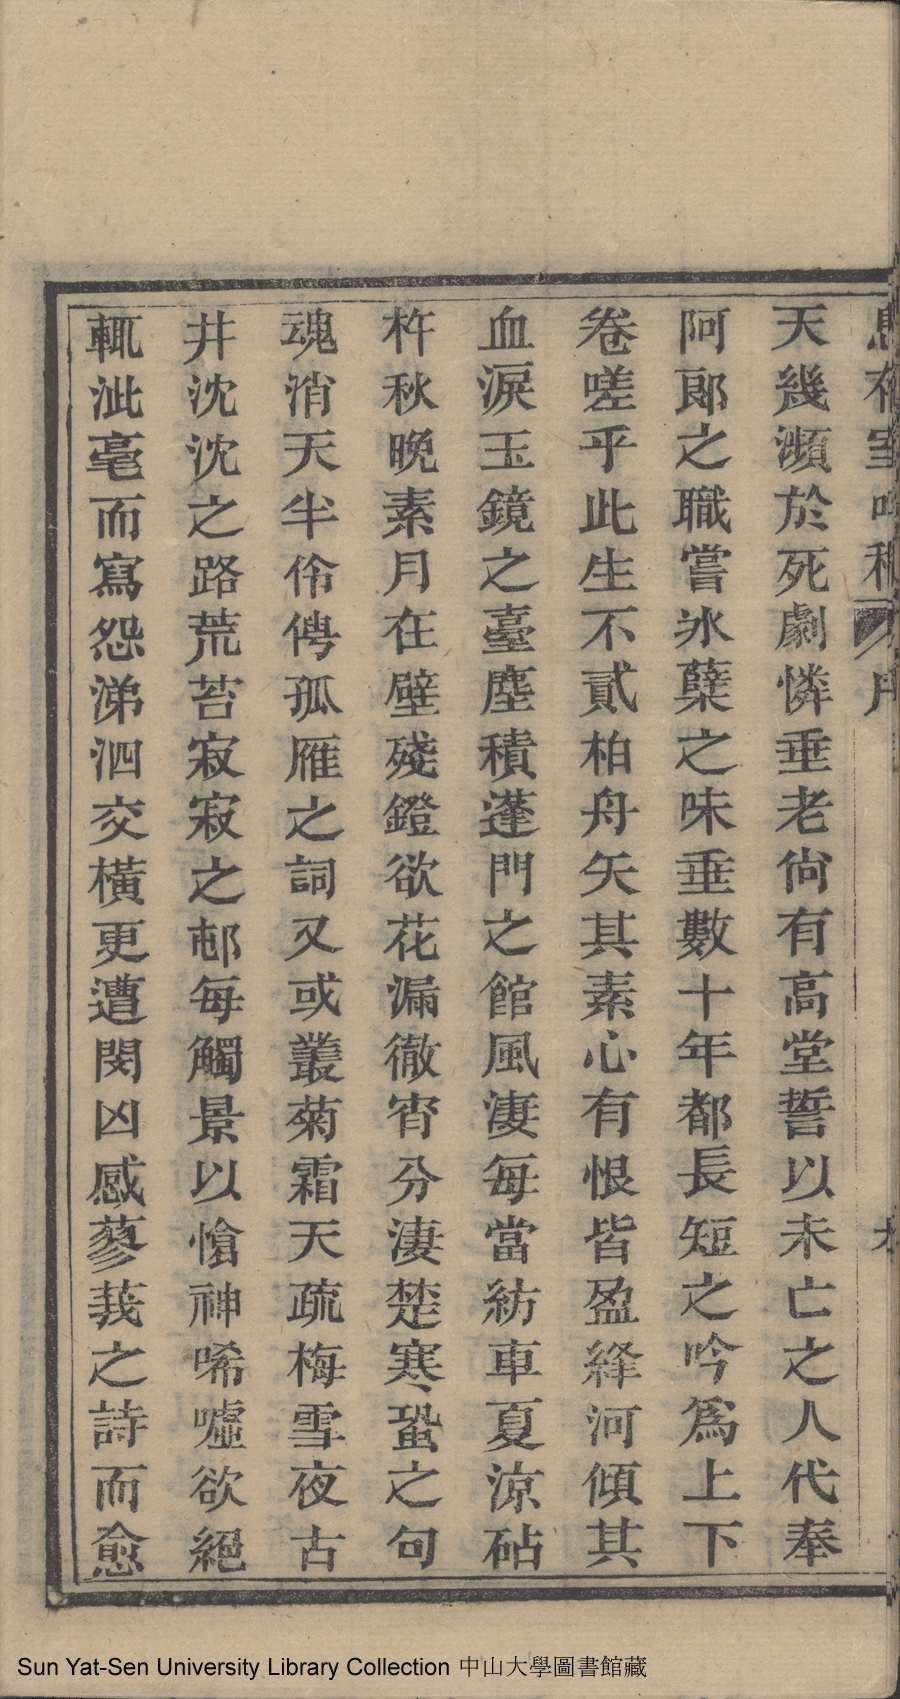 天幾濒於死劇憐垂老尙有高堂誓以未亡之人代奉
阿郞之職嘗冰蘖之味垂數十年都長短之吟爲上下
卷嗟乎此生不貳柏舟矢其素心有恨皆盈絳河傾其
血淚玉鏡之臺塵積蓬門之館風淒每當紡車夏涼砧
杵秋晚素月在壁殘鐙欲花漏徹宵分淒楚寒蛩之句
魂消天半伶俜孤雁之詞又或叢菊霜天疏梅雪夜古
井沈沈之路荒苔寂寂之邨每觸景以愴神唏噓欲絕
輒泚毫而寫怨涕泗交橫更遭閔凶感蓼莪之詩而愈
Sun Yat-Sen University Library Collection 中山大學圖書館藏